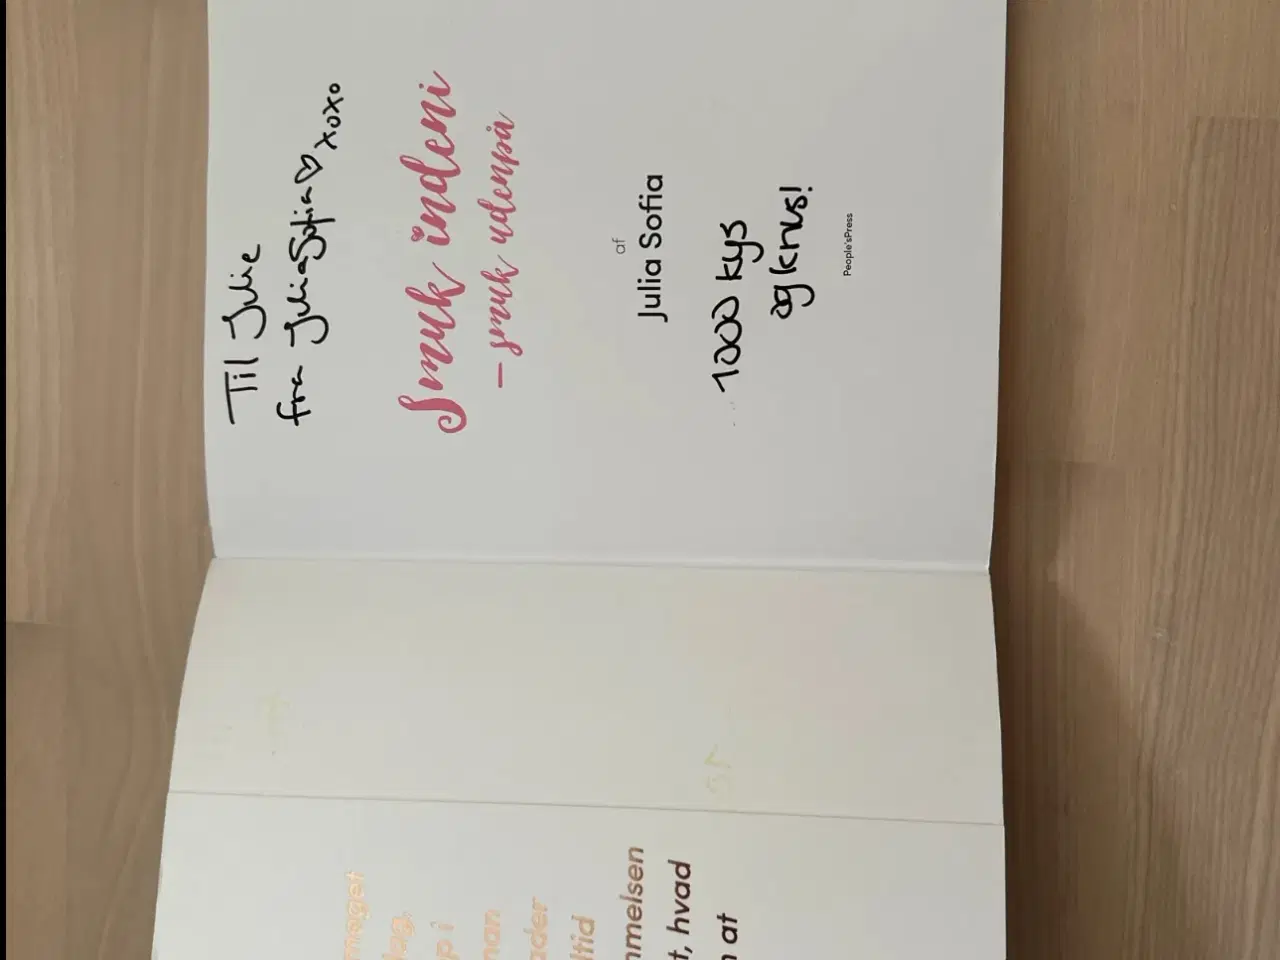 Til Julie
fra JuliaSofia♡ xoxo
Smuk indeni
– smuk udenpå
af
Julia Sofia
1000 kys
og knus!
People'sPress
meget
dag,
p i
nan
ader
ltid
mmelsen
t, hvad
at